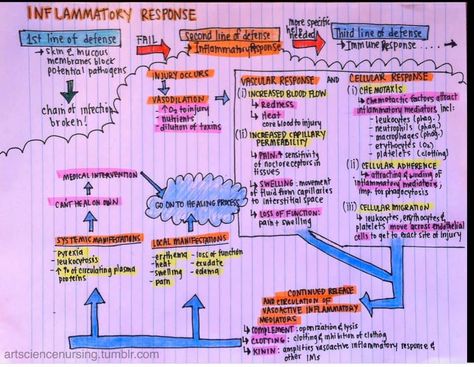 INFLAMMATORY RESPONSE
1st line of defense
→ skin & mucous
membranes block
potential pathogens
chain of infection
broken!
FAIL
second line of defense
→ Inflammatory Response
more specific
help needed
Third line of defense
→ Immune Response ....→
INJURY OCCURS
VASODILATION
↑ O₂ to injury
- nutrients
- dilution of toxins
VASCULAR RESPONSE AND CELLULAR RESPONSE
(i) INCREASED BLOOD FLOW
↳ Redness
↳ Heat
core blood to injury
(ii) INCREASED CAPILLARY
PERMEABILITY
↳ PAIN: ↑ sensitivity
of nocioreceptors in
tissues
↳ SWELLING: movement
of fluid from capillaries
to interstitial space
↳ LOSS OF FUNCTION:
pain + swelling
(i) CHEMOTAXIS
↳ Chemotactic factors attract
inflammatory mediators, incl:
- leukocytes (phag.)
- neutrophils (phag.)
- macrophages (phag.)
- erythrocytes (O₂)
- platelets (clotting)
(ii) CELLULAR ADHERENCE
↳ attracting & binding of
inflammatory mediators,
imp. for phagocytosis
(iii) CELLULAR MIGRATION
↳ leukocytes, erythrocytes &
platelets move across endothelial
cells to get to exact site of injury
MEDICAL INTERVENTION
CAN'T HEAL ON OWN
GO ON TO HEALING PROCESS
SYSTEMIC MANIFESTATIONS
- pyrexia
- leukocytosis
- ↑ % of circulating plasma
proteins
LOCAL MANIFESTATIONS
- erythema
- heat
- swelling
- pain
- loss of function
- exudate
- edema
CONTINUED RELEASE
AND CIRCULATION OF
VASOACTIVE INFLAMMATORY
MEDIATORS
↳ COMPLEMENT: opsonization & lysis
↳ CLOTTING: clotting & inhibition of clotting
↳ KININ: amplifies vasoactive inflammatory response &
other IMs
artsciencenursing.tumblr.com